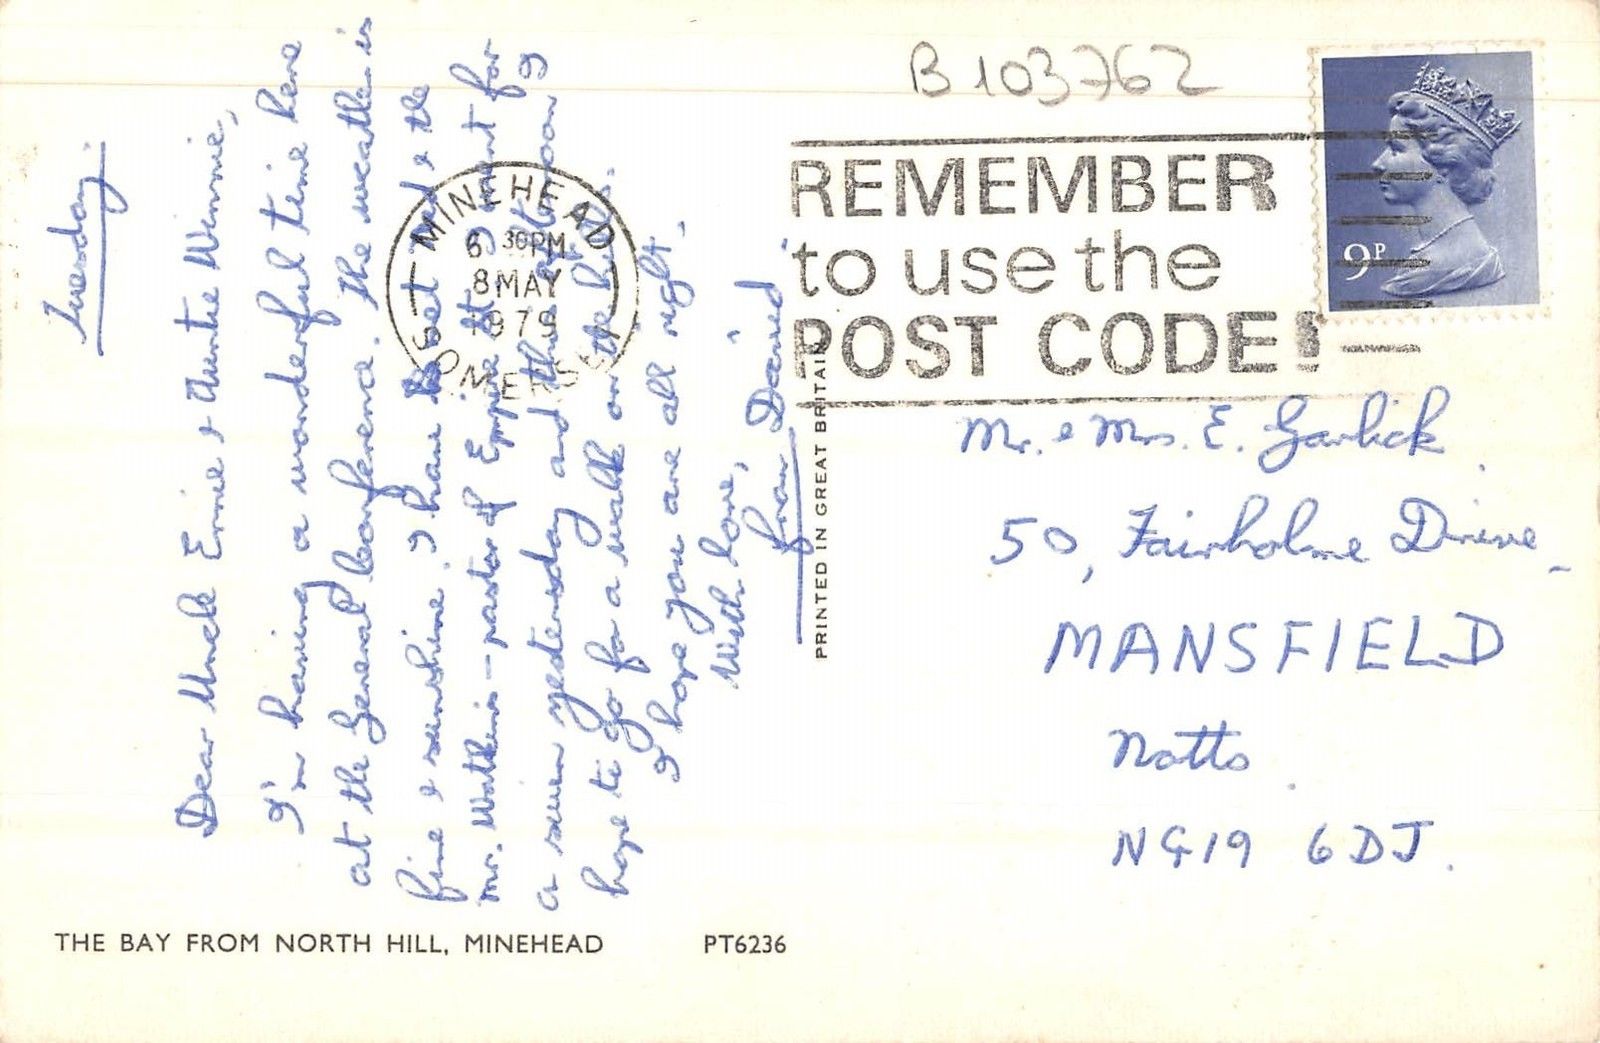 Tuesday.
Dear Uncle Ernie & Auntie Winnie,
I'm having a wonderful time here
at the General Conference. The weather is
fine & sunshine. I have met &  the
Mr. Watkins - pastor of Empire St. I went for
a swim yesterday and this afternoon I
hope to go for a walk on the hills.
I hope you are all right.
With love,
from David
THE BAY FROM NORTH HILL, MINEHEAD
PT6236
PRINTED IN GREAT BRITAIN
B 103762
MINEHEAD
6 30PM
8 MAY
1979
SOMERSET
REMEMBER
to use the
POST CODE!
9P
Mr. & Mrs. E. Garlick.
50, Fairholme Drive
MANSFIELD
Notts.
NG19 6DJ.